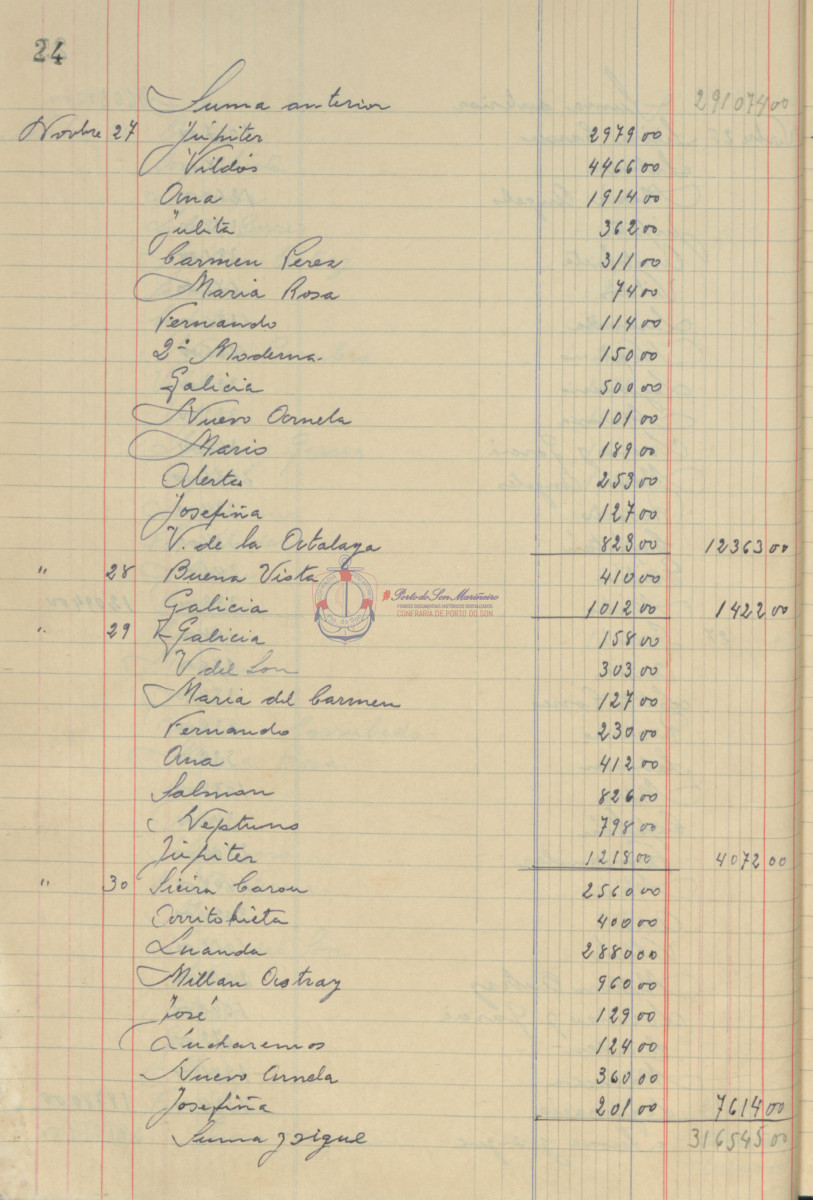 24
Suma anterior 29107400
Novbre 27 Júpiter 297900
Vildós 446600
Ana 191400
Julita 36200
Carmen Perez 31100
Maria Rosa 7400
Fernando 11400
2ª Moderna. 15000
Galicia 50000
Nuevo Arnela 10100
Mario 18900
Alerta 25300
Josefiña 12700
V. de la Atalaya 82300 1236300
" 28 Buena Vista 41000
Galicia 101200 142200
" 29 Galicia 15800
V del Son 30300
Maria del Carmen 12700
Fernando 23000
Ana 41200
Salman 82600
Neptuno 79800
Júpiter 121800 407200
" 30 Sieira Carou 256000
Arritokieta 40000
Luanda 288000
Millan Astray 96000
José 12900
Lucharemos 12400
Nuevo Arnela 36000
Josefiña 20100 761400
Suma y sigue 31654500
Porto do Son Mariñeiro
FONDOS DOCUMENTAIS HISTÓRICOS DIXITALIZADOS
CONFRARIA DE PORTO DO SON